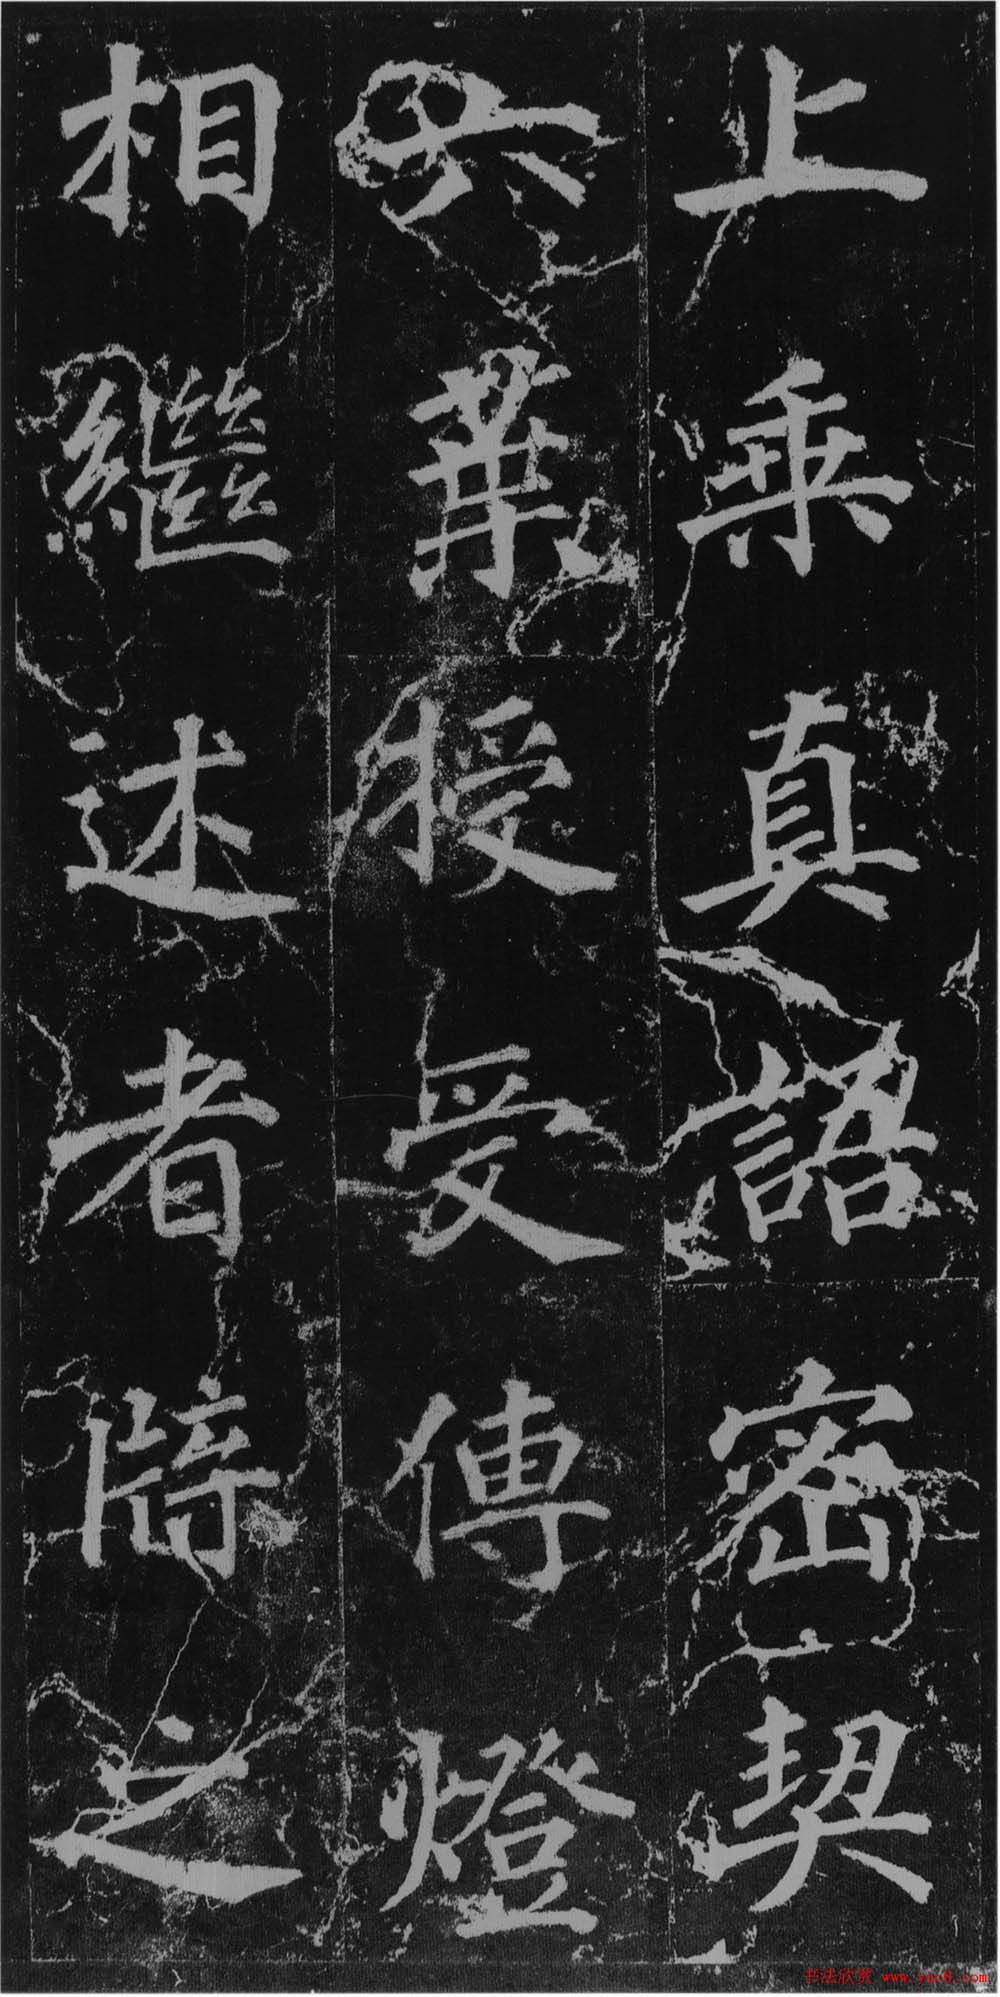 上乘真語密契
六葉授受傳燈
相繼述者牓之
书法欣赏 www.yac8.com